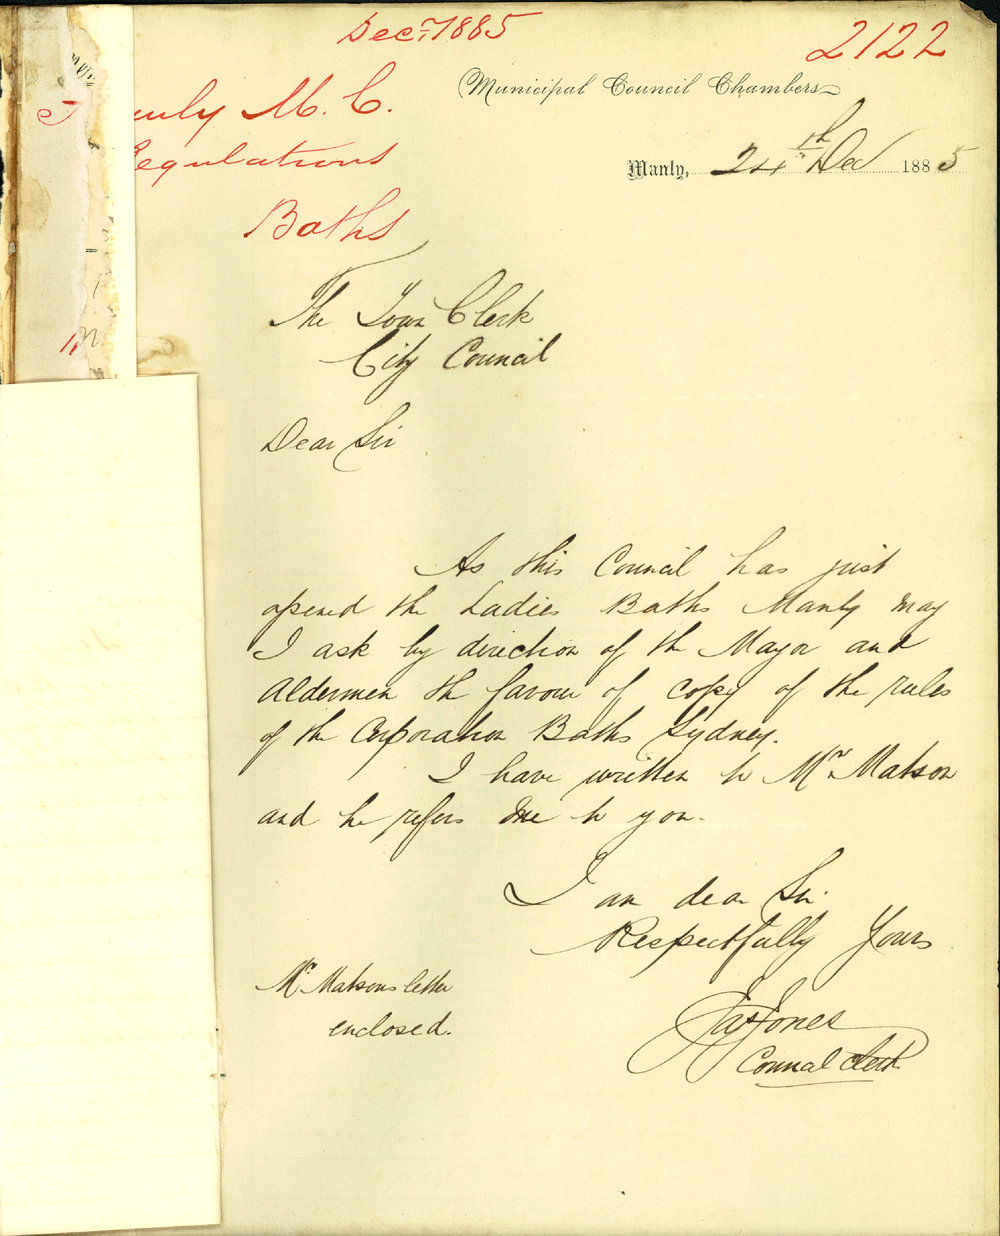 Dec.r 1885
2122
Municipal Council Chambers
anly M. C.
Regulations
Baths
Manly, 24th Dec 1885
The Town Clerk
City Council
Dear Sir
As this Council has just
opened the Ladies Baths Manly may
I ask by direction of the Mayor and
Aldermen the favour of copy of the rules
of the Corporation Baths Sydney.
I have written to Mr Matson
and he refers me to you.
I am dear Sir
Respectfully Yours
Mr Matsons letter
enclosed.
Jas Jones
Council Clerk